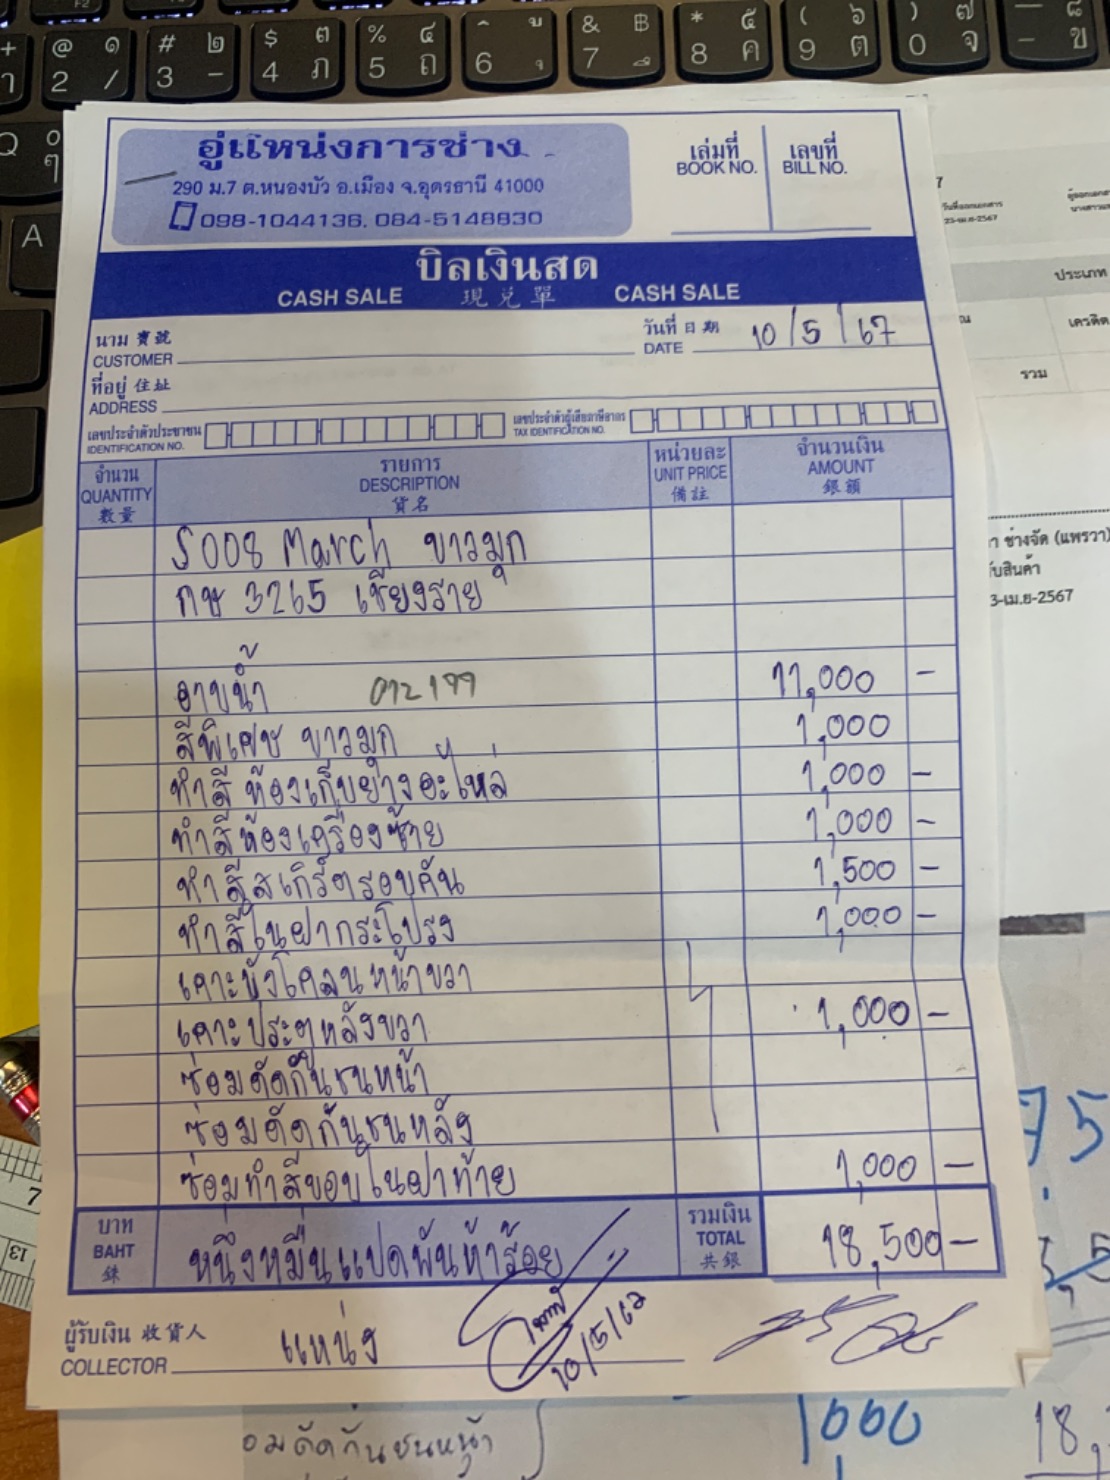 อู่แหน่งการช่าง
290 ม.7 ต.หนองบัว อ.เมือง จ.อุดรธานี 41000
098-1044136, 084-5148830
เล่มที่ เลขที่
BOOK NO. BILL NO.
บิลเงินสด
CASH SALE 現兌單 CASH SALE
นาม 寶號
CUSTOMER
วันที่ 日期
DATE 10/5/67
ที่อยู่ 住址
ADDRESS
เลขประจำตัวประชาชน
IDENTIFICATION NO.
เลขประจำตัวผู้เสียภาษีอากร
TAX IDENTIFICATION NO.
จำนวน รายการ หน่วยละ จำนวนเงิน
QUANTITY DESCRIPTION UNIT PRICE AMOUNT
數量 貨名 備註 銀額
S008 March ขาวมุก
กษ 3265 เชียงราย
อาบน้ำ 11,000 -
สีพิเศษ ขาวมุก 1,000
ทำสี ห้องเก็บยางอะไหล่ 1,000 -
ทำสีห้องเครื่องซ้าย 1,000 -
ทำสีสเกิร์ตรอบคัน 1,500 -
ทำสีในฝากระโปรง 1,000 -
เคาะบังโคลนหน้าขวา
เคาะประตูหลังขวา 1,000 -
ซ่อมดัดกันชนหน้า
ซ่อมดัดกันชนหลัง
ซ่อมทำสีขอบในฝาท้าย 1,000 -
บาท
BAHT
銖
หนึ่งหมื่นแปดพันห้าร้อย
รวมเงิน
TOTAL
共銀
18,500 -
ผู้รับเงิน 收貨人
COLLECTOR แหน่ง
10/5/67
วันที่ออกเอกสาร
23-เม.ย-2567
ประเภท
เครดิต
รวม
ช่างจัด (แพรวา)
รับสินค้า
3-เม.ย-2567
75
อมดัดกันชนหน้า
1000
18,